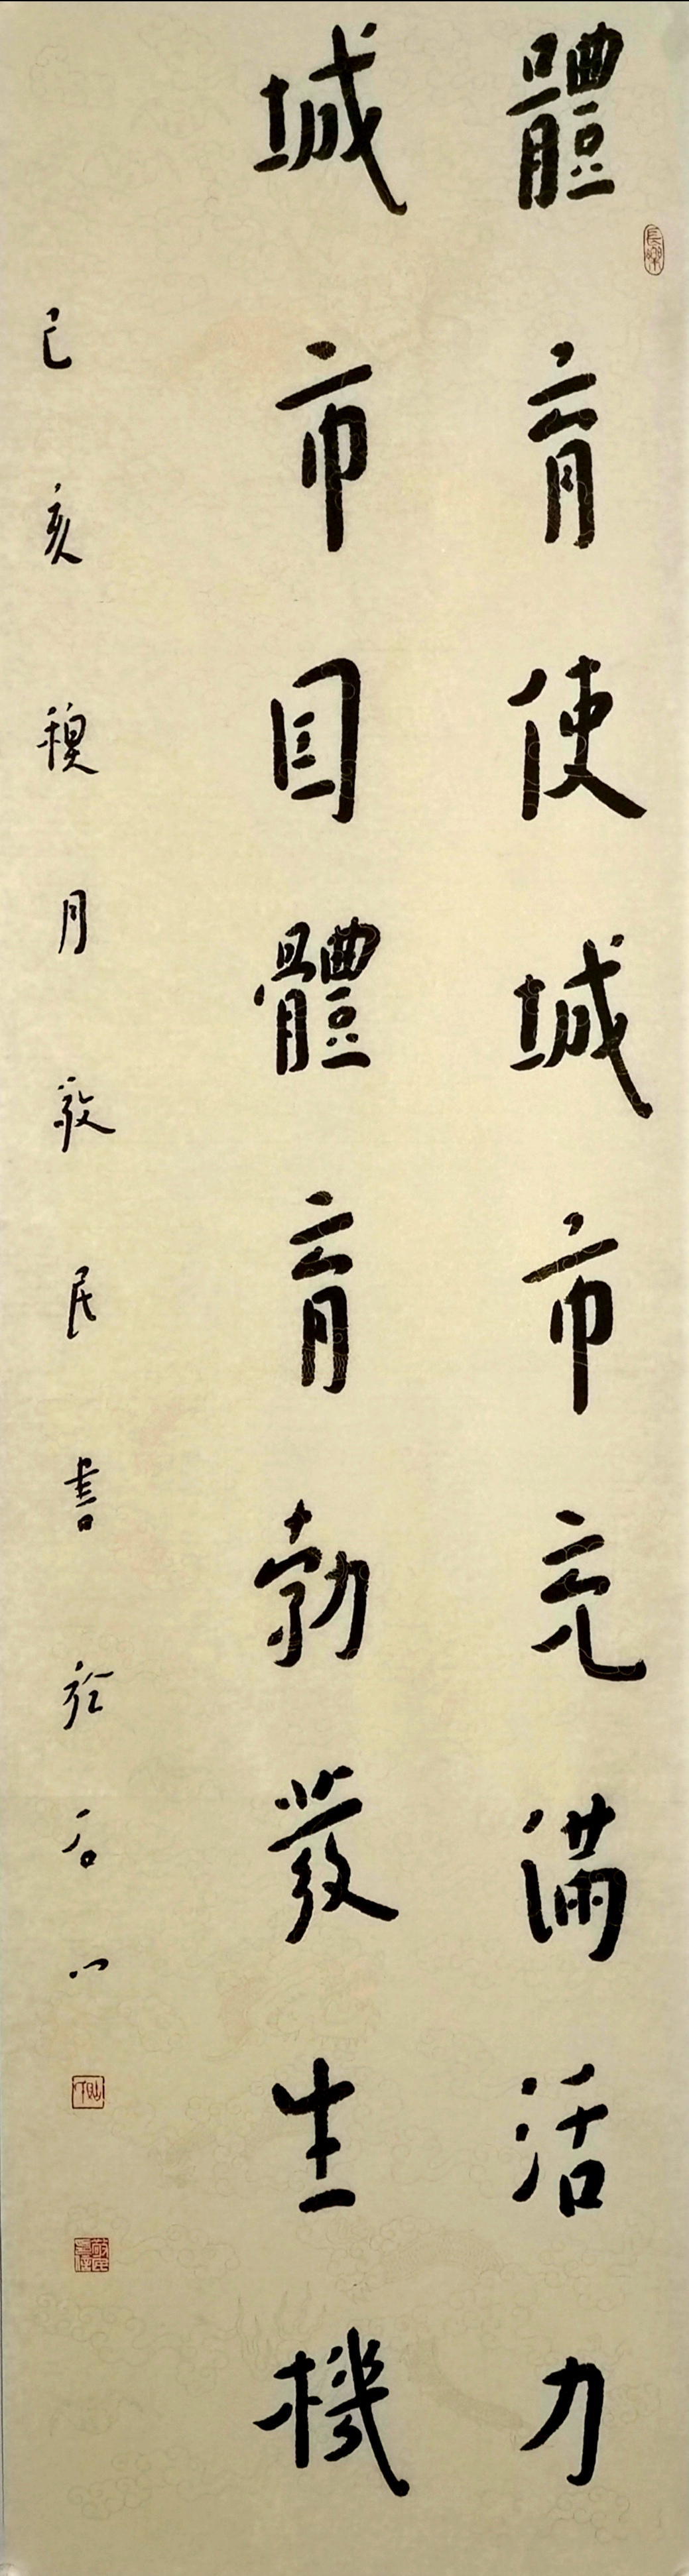 體育使城市充滿活力
城市因體育勃發生機
己亥穆月敬民書於石門